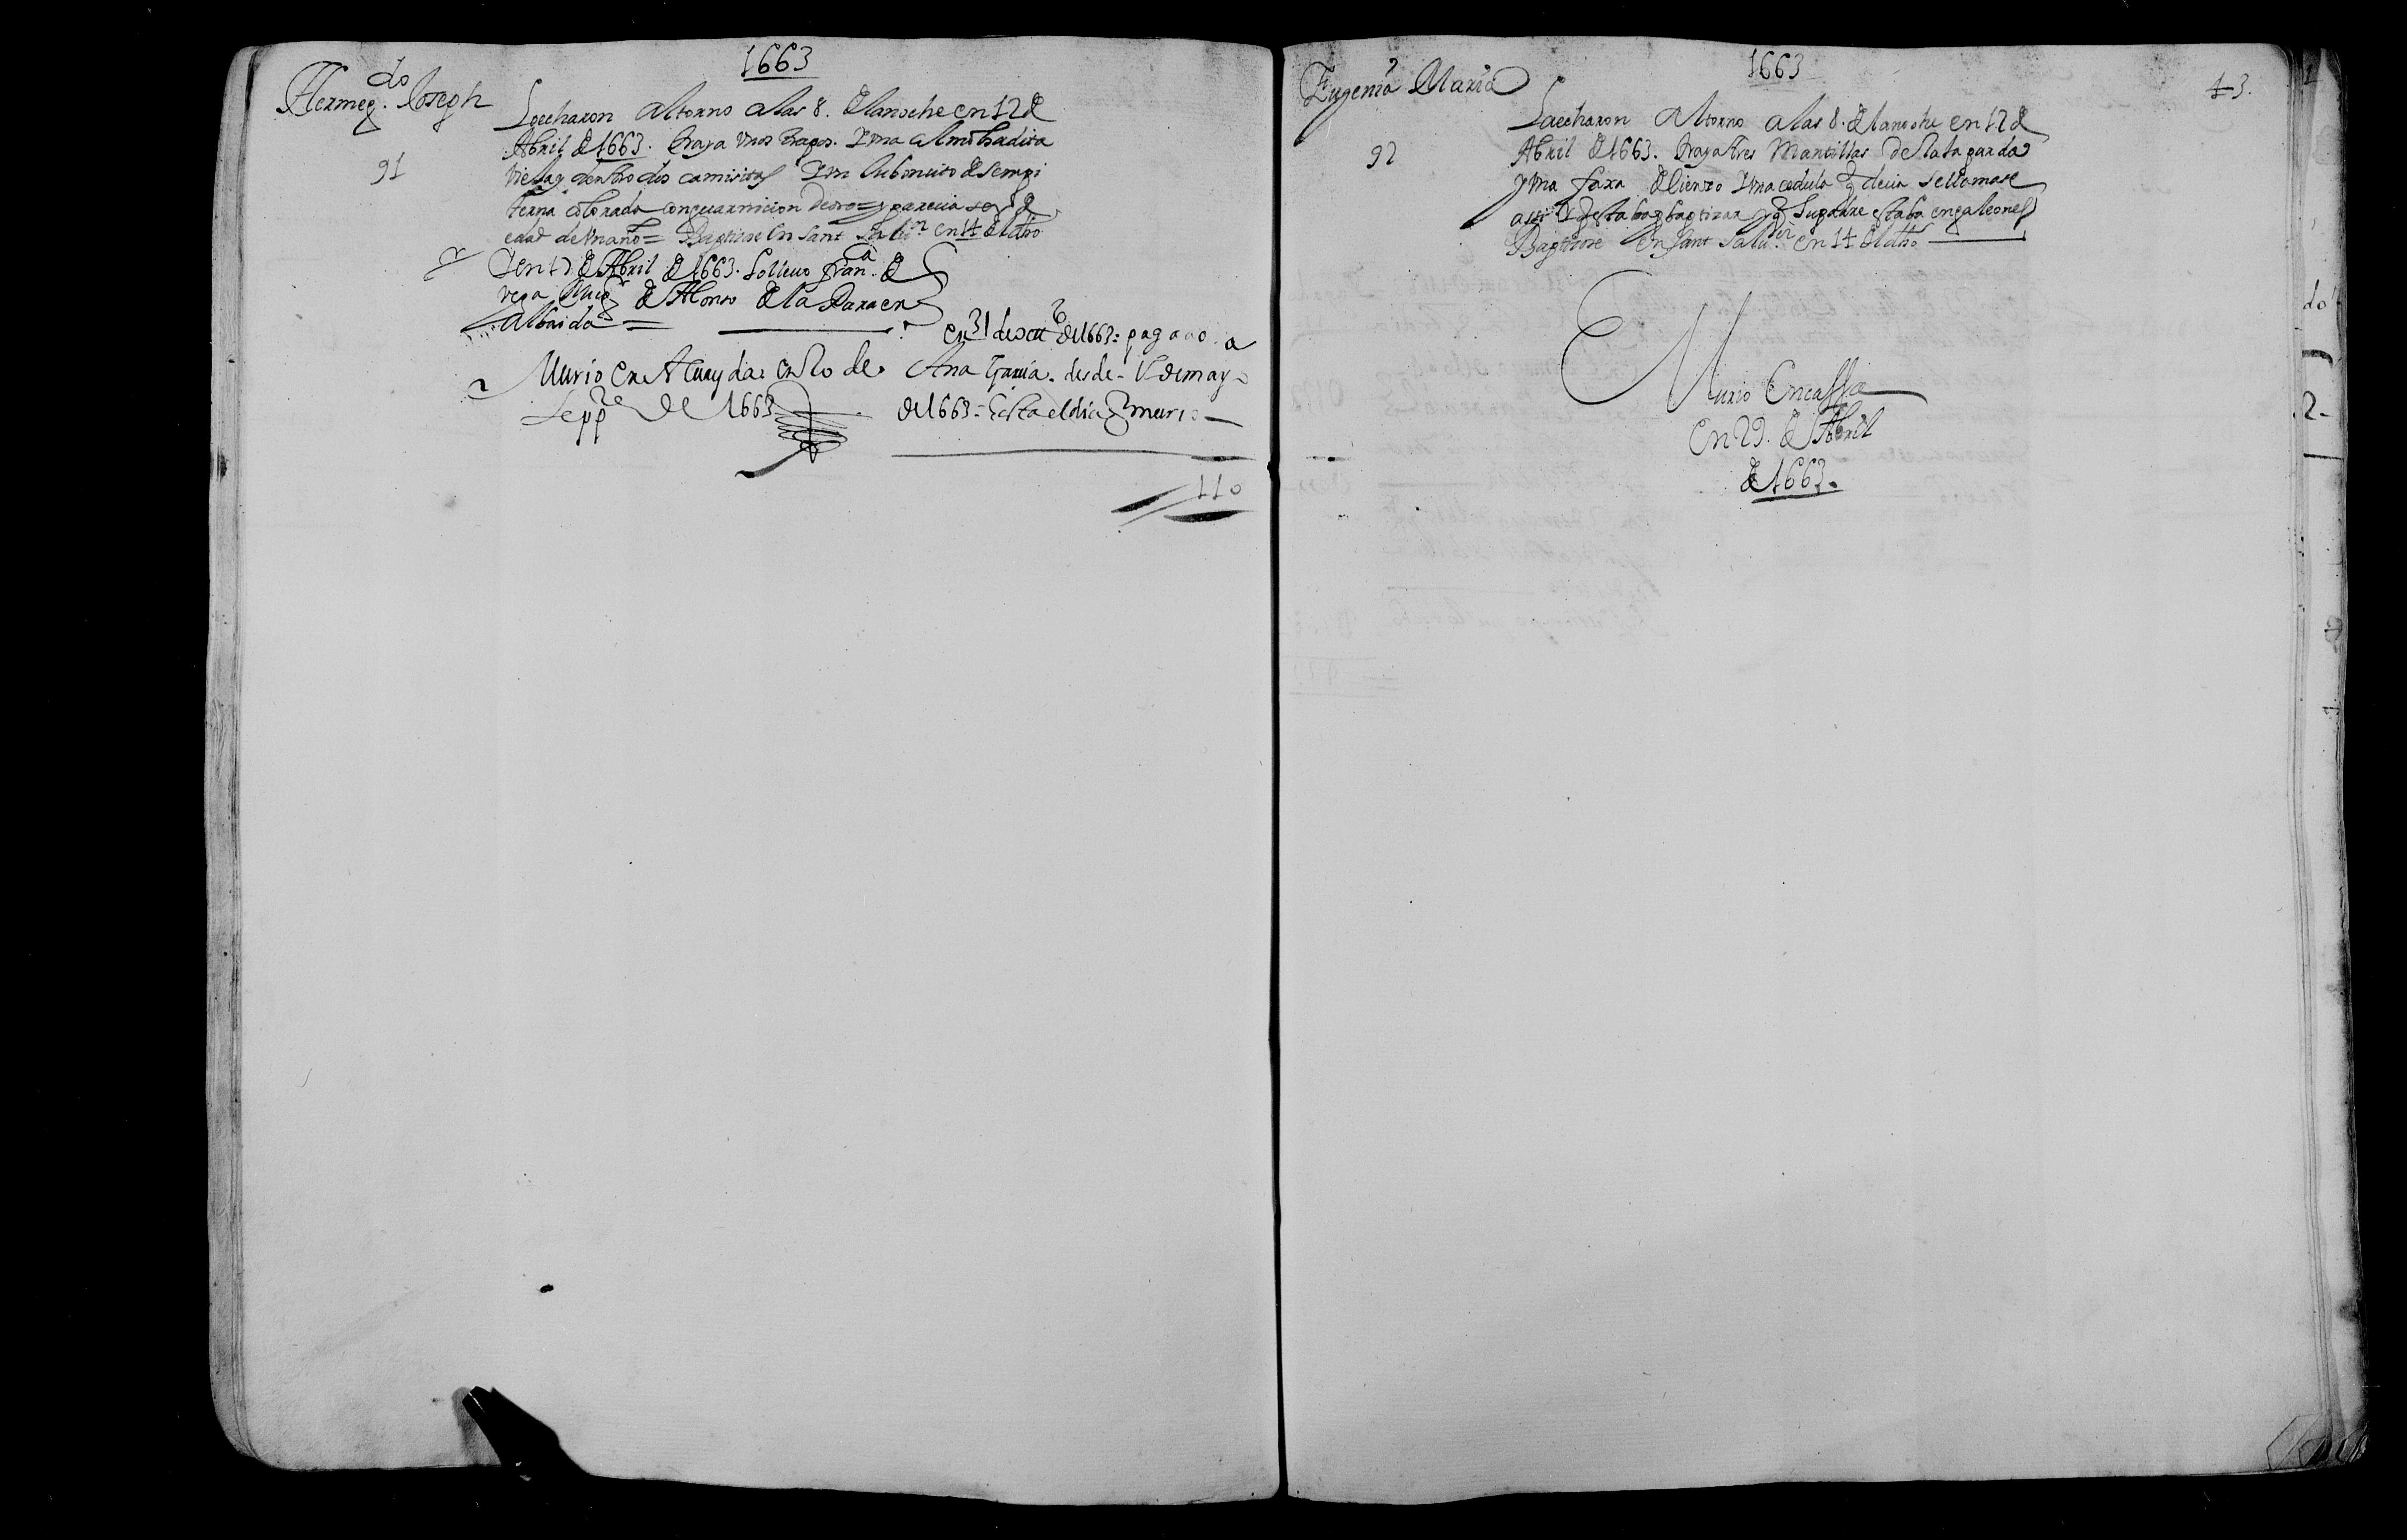 1663
Hermeg.do Joseph
Loecharon al torno a las 8. de la noche en 12 de
Abril de 1663. traya unos trapos. Y una almohadita
vieja y dentro dos camisitas Y un Jubonsito de sempi
terna colorada con guarnicion de oro = y parecia ser de
edad de un año = Baptizose en Sant Salu.or en 14 de dho
91
Y en 17 de Abril de 1663. lo lleuo Fran.ca de
vega mug.r de Alonso de la Para en
Albaida =
en 31 de oct.e de 1663: pagado. a
Murio en Alvayda: en 20 de
Ana Garcia. desde - 15 de may-o
Sepp.re de 1663
de 1663 = hasta el dia q murio
110
1663
43.
Eugenia Maria
Laecharon al torno a las 8. de la noche en 12 de
Abril de 1663. traya tres Mantillas de Raja parda
y una faxa de lienzo Y una cedula q decia se llamase
assi y q estaba por baptizar y q Su padre estaba en galeones
Baptizose en Sant Salu.or en 14 de dho
92
Murio en cassa
en 29. de Abril
de 1663.